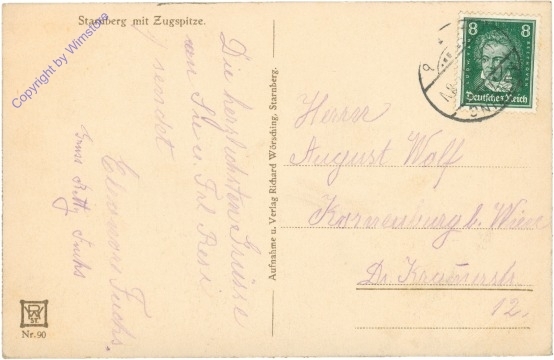 Starnberg mit Zugspitze.
Copyright by Wimstore
Die herzlichsten Grüsse
an Sie u. Frl. Resi
sendet
Fuchs.
Betty Fuchs
Aufnahme u. Verlag Richard Wörsching, Starnberg.
8 8
Deutsches Reich
Herrn
August Wolf
Korneuburg b. Wien
Dr. Kramerstr.
12.
ST.
Nr. 90